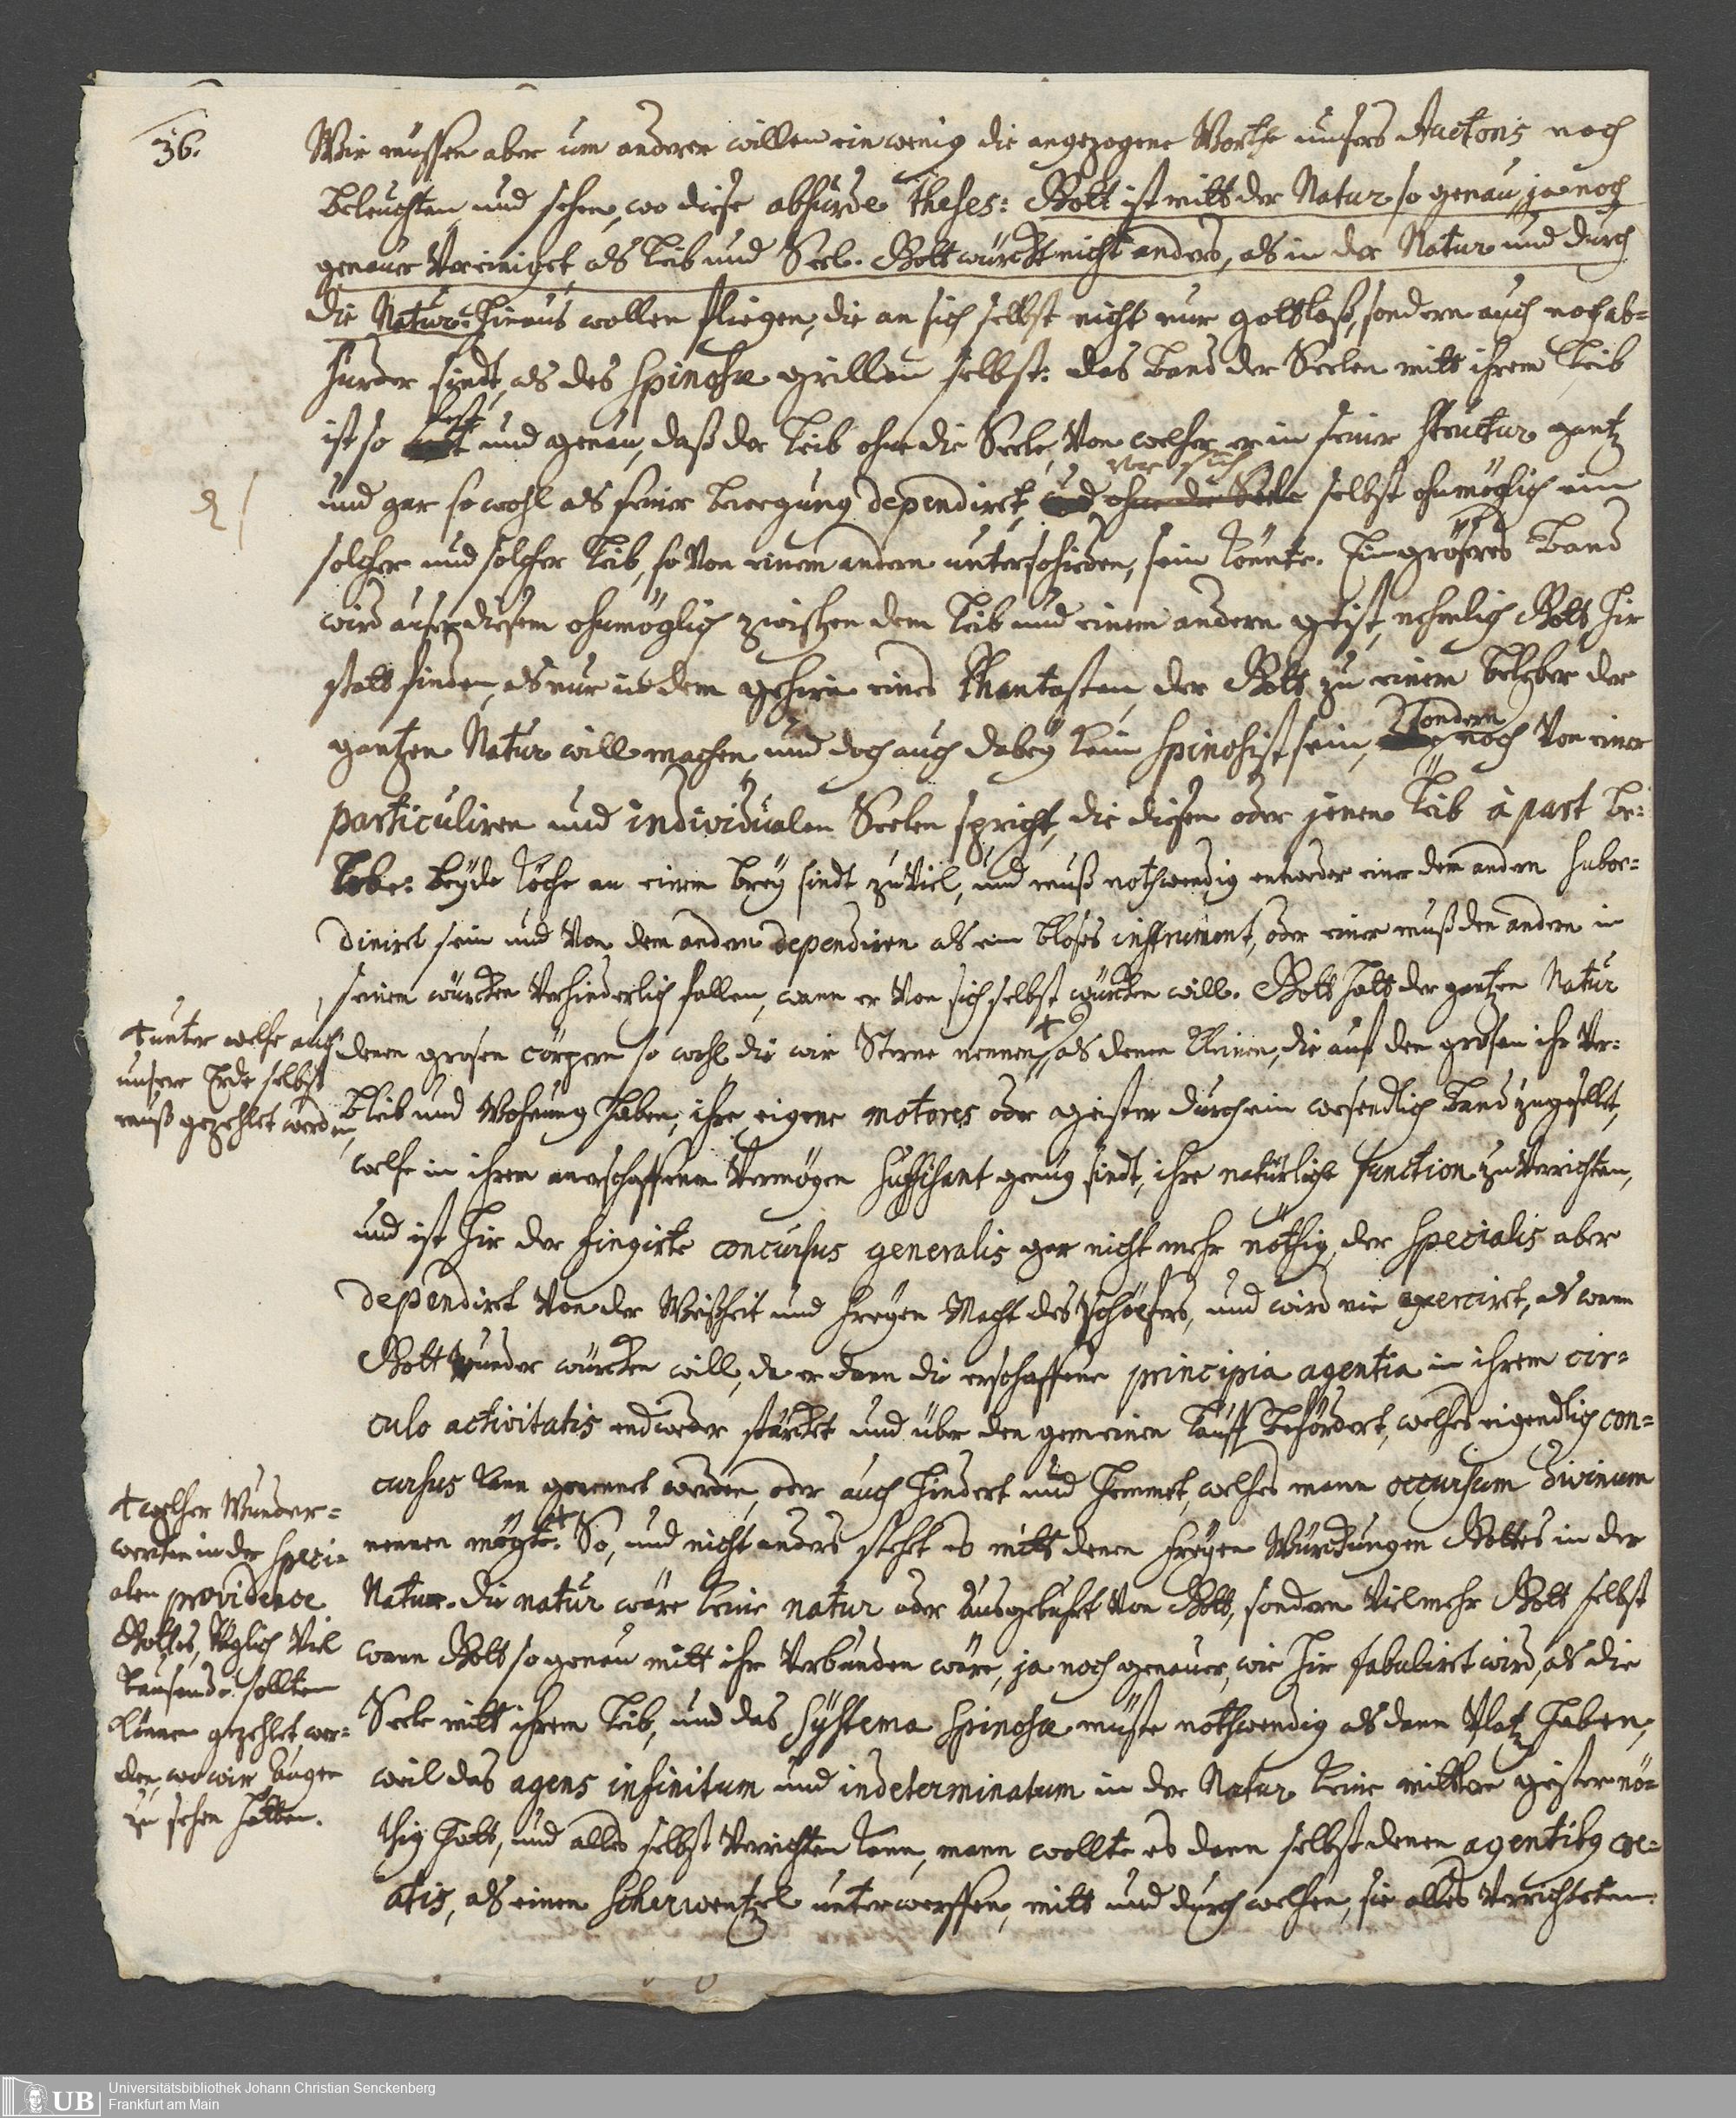 36.
Wir müssen aber um anderer willen ein wenig die angezogene Worthe unsers Auctoris noch
beleuchten und sehen, wo diese absurde theses: Gott ist mitt der Natur so genau, ja noch
genauer Vereiniget, als Leib und Seel. Gott würckt nicht anders, als in der Natur und durch
die Natur: hinaus wollen fliegen, die an sich selbst nicht nur gottloß, sondern auch noch ab-
surder sindt, als des Spinosæ grillen selbst: das Band der Seelen mitt ihrem Leib
ist so fest und genau, daß der Leib ohne die Seele, Von welcher er in seiner structur gantz
und gar so wohl als seiner bewegung dependiret, und ohne die Seele vor sich selbst ohnmöglich ein
solcher und solcher Leib, so Von einem andern unterschieden, sein könnte. Ein größeres Band
wird auser diesem ohnmöglich zwischen dem Leib und einem andern geist, nehmlich Gott hir
statt finden, als nur in dem gehirn eines Phantasten, der Gott zu einem beleber der
gantzen Natur will machen und doch auch dabey kein Spinosist sein, sondern noch Von einer
particuliren und individualen Seelen spricht, die diesen oder jenen Leib à part be-
lebe: beyde köche an einem brey sindt zu Viel, und muß nothwendig entweder einer dem andern subor-
dinirt sein und Von dem andern dependiren als ein bloses instrument, oder einer muß den andern in
seinem würcken Verhinderlich fallen, wann er Von sich selbst würcken will. Gott hatt der gantzen Natur
denen grosen cörpern so wohl die wir Sterne nennen, + als denen kleinen, die auf den grosen ihr Ver-
bleib und Wohnung haben, ihre eigene motores oder geister durch ein wesendlich Band zugesellet,
welche in ihrem anerschaffenen Vermögen suffisant genug sindt, ihre natürliche function zu Verrichten,
und ist hir der fingirte concursus generalis gar nicht mehr nöthig, der specialis aber
dependiret Von der Weißheit und freyen Macht des Schöpfers, und wird nie exerciret, als wann
Gott wunder würcken will, da er dann die erschaffene principia agentia in ihrem cir-
culo activitatis endweder stärcket und über den gemeinen Lauff befördert, welches eigendlich con-
cursus kan genennet werden, oder auch hindert und hemmet, welches mann occursum divinum
nennen mögte. + So, und nicht anders stehet es mitt denen freyen Würckungen Gottes in der
Natur. die natur wäre keine natur oder Von Gott, sondern Vielmehr Gott selbst
wann Gott so genau mitt ihr Verbunden wäre, ja noch genauer, wie hir fabuliret wird, als die
Seele mitt ihrem Leib, und das Systema Spinosæ müste nothwendig als dann Platz haben,
weil das agens infinitum und indeterminatum in der Natur keine mittlere geister nö-
thig hatt, und alles selbst Verrichten kann, mann wollte es dann selbst denen agentibus cre-
atis, als einen Scherwentzel unterwerffen, mitt und durch welchen, sie alles Verrichteten.
+ unter welche auch
unsere Erde selbst
muß gezehlet werden,
+ welcher Wunder-
wercken in der speci-
alen providence
Gottes, täglich Viel
tausende sollten
können gezehlet wer-
den, wo wir augen
zu sehen hätten.
UB
Universitätsbibliothek Johann Christian Senckenberg
Frankfurt am Main